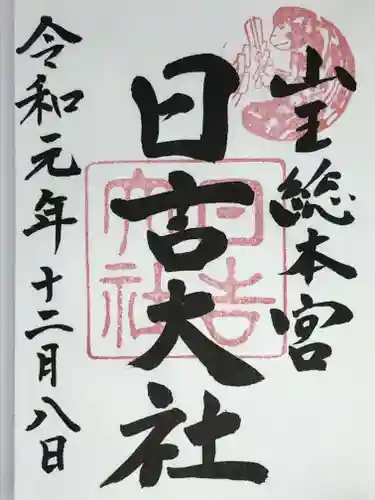 山王総本宮
日吉大社
日吉大社
令和元年十二月八日